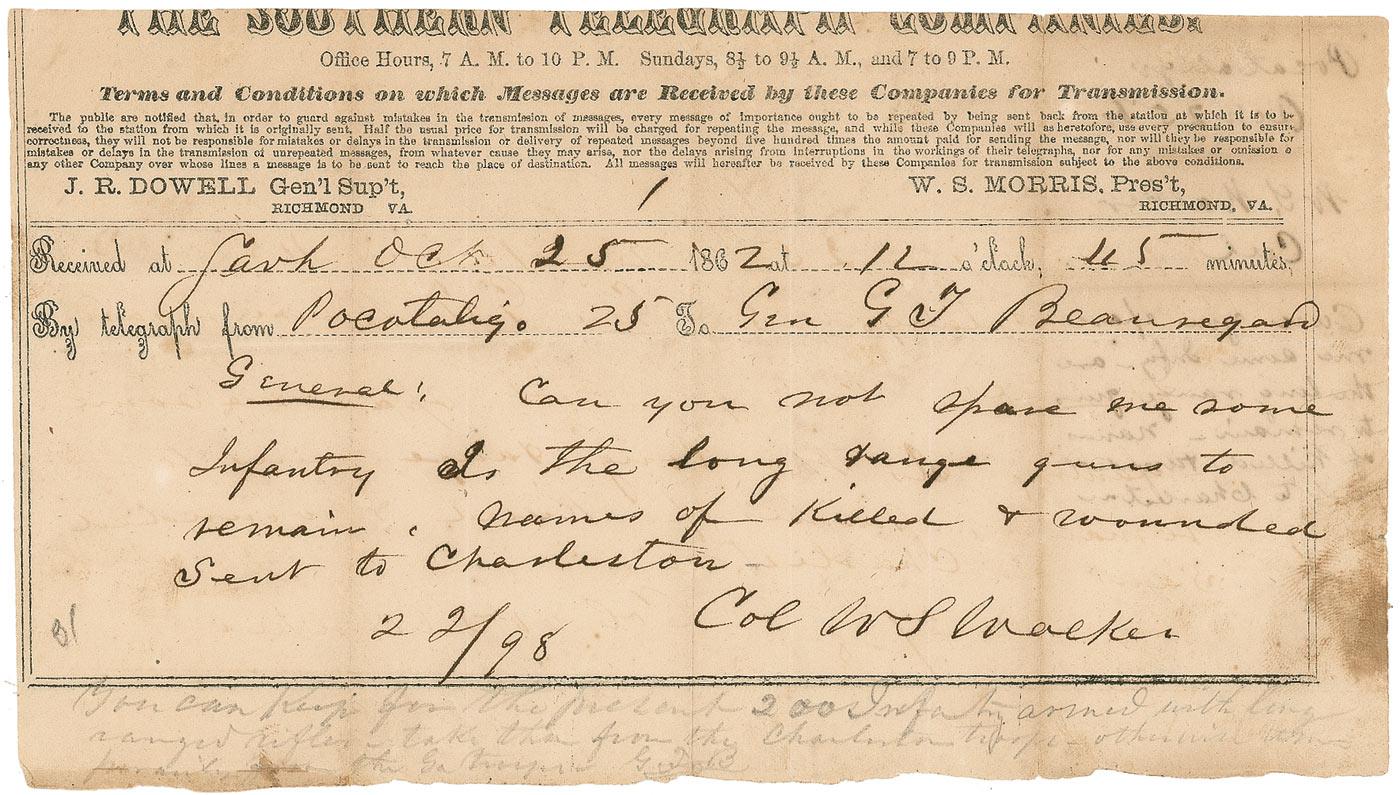 THE SOUTHERN TELEGRAPH COMPANIES.
Office Hours, 7 A. M. to 10 P. M. Sundays, 8½ to 9½ A. M., and 7 to 9 P. M.
Terms and Conditions on which Messages are Received by these Companies for Transmission.
The public are notified that, in order to guard against mistakes in the transmission of messages, every message of importance ought to be repeated by being sent back from the station at which it is to be
received to the station from which it is originally sent. Half the usual price for transmission will be charged for repeating the message, and while these Companies will as heretofore, use every precaution to ensure
correctness, they will not be responsible for mistakes or delays in the transmission or delivery of repeated messages beyond five hundred times the amount paid for sending the message, nor will they be responsible for
mistakes or delays in the transmission of unrepeated messages, from whatever cause they may arise, nor the delays arising from interruptions in the workings of their telegraphs, nor for any mistakes or omission o
any other Company over whose lines a message is to be sent to reach the place of destination. All messages will hereafter be received by these Companies for transmission subject to the above conditions.
J. R. DOWELL Gen'l Sup't, 1 W. S. MORRIS, Pres't,
RICHMOND VA. RICHMOND, VA.
Received at Savh Oct 25 1862 at 12 o'clock, 45 minutes,
By telegraph from Pocotaligo 25 To Gen G T Beauregard
General: Can you not spare me some
Infantry Is the long range guns to
remain. Names of Killed & wounded
Sent to Charleston
22/98 Col W S Walker
31
You can keep for the present 200 Infantry armed with long
ranged rifles - take them from the Charleston troops - otherwise
from the Ga troops G.T.B